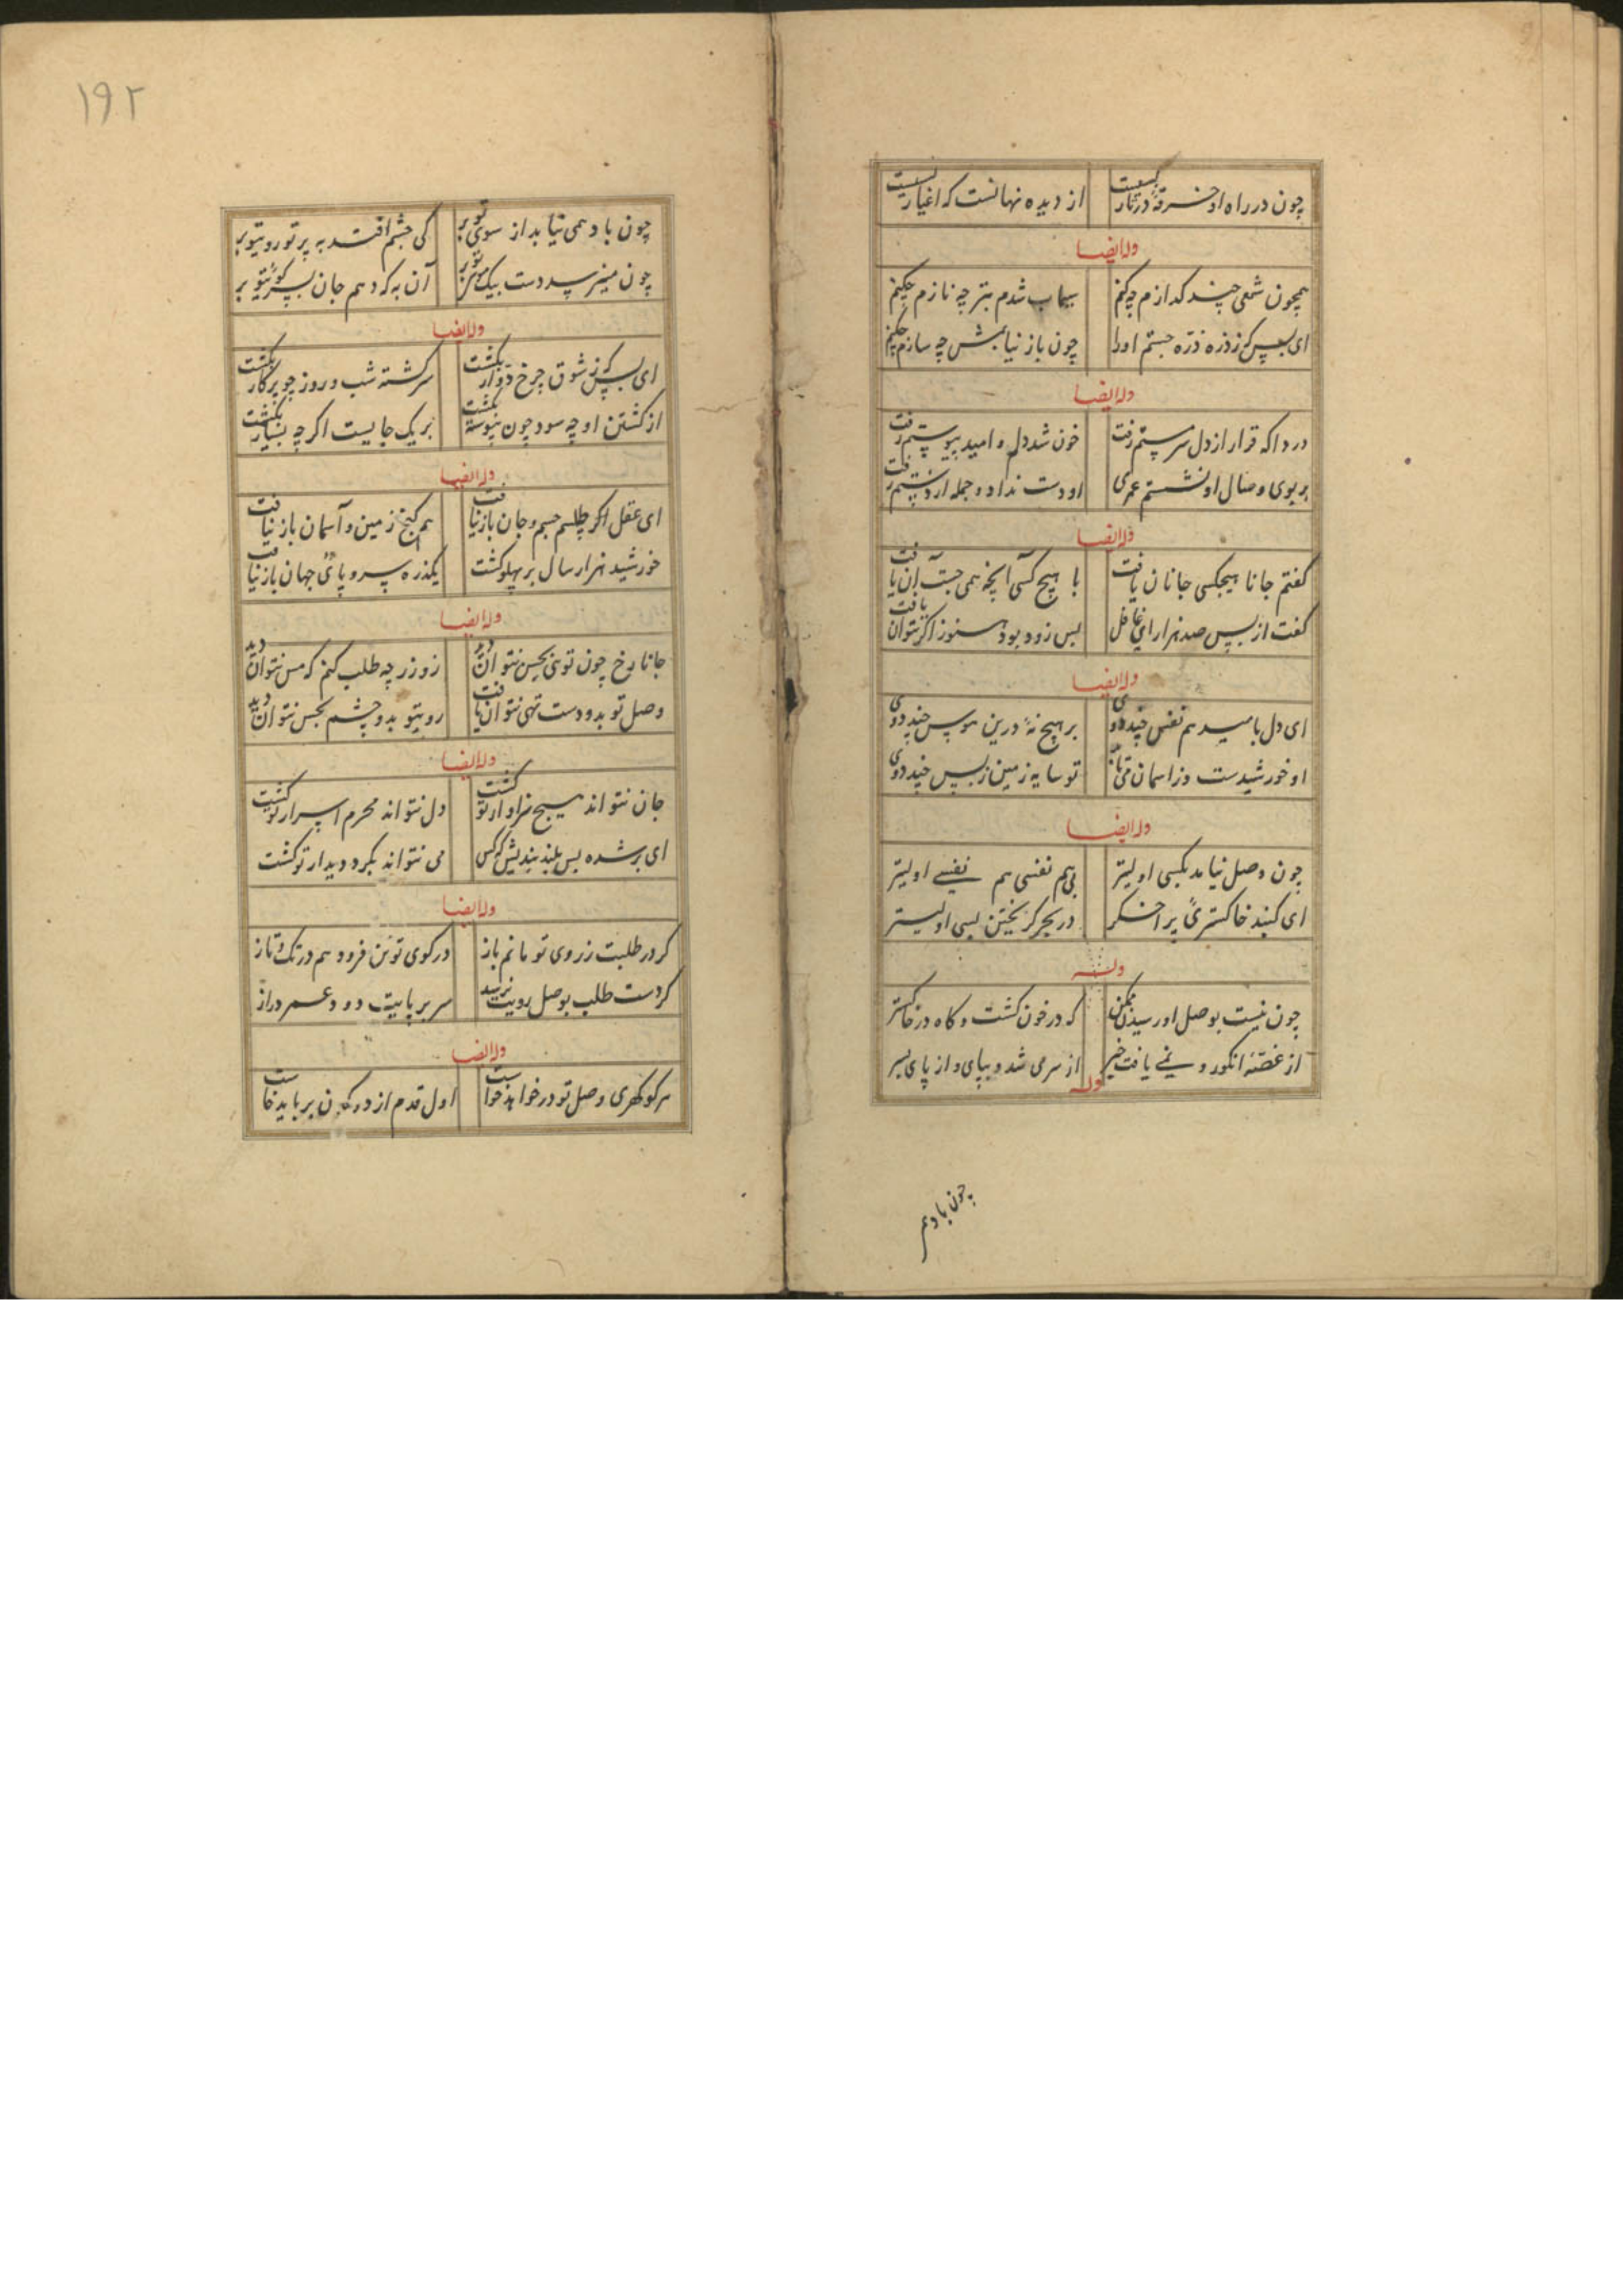 چون در راه او خرقه درنار کسیست از دیده نهانست که اغیار کسیست
وله ایضا
همچون شمعی چند گدازم چه کنم سیماب شدم بتر چه نازم چکنم
ای بس که ز ذره ذره جستم او را چون باز نیابمش چه سازم چکنم
وله ایضا
دردا که قرار از دل سرمستم رفت خون شد دل و امید بپیوستم رفت
بر بوی وصال او نشستم عمری او دست نداد و جمله از دستم رفت
وله ایضا
گفتم جانا هیچکسی جانان یافت با هیچ کسی آنچه همی جست آن یافت
گفت از پس صد هزار ای غافل بس زود بود هنوز اگر توان یافت
وله ایضا
ای دل بامید هم نفس چند دوی بر هیچ نهٔ درین هوس چند دوی
او خورشیدست وز اسمان می تابد تو سایه زمین ز پس چند دوی
وله ایضا
چون وصل نیامد بکسی اولیتر بی هم نفسی هم نفسی اولیتر
ای گنبد خاکستری پر اخگر در بحر گریختن بسی اولیتر
وله
چون نیست بوصل او رسیدن ممکن که در خون گشت و گاه در خاکستر
از غصه انکور و نمی یافت خبر از سر می شد و بپای و از پای بسر
وله
چون باد هم
۱۹۲
چون باد همی نیاید از سوی تو بر کی چشم افتد به پرتو روی تو بر
چون می نرسد دست بیک موی تو بر آن به که دهم جان بسر کوی تو بر
وله ایضا
ای بس که ز شوق چرخ دوار بگشت سرگشته شب و روز چو پرگار بگشت
از گشتن او چه سود چون پیوسته بر یک جایست اگر چه بسیار بگشت
وله ایضا
ای عقل اگر چه طلسم جسم و جان باز نیافت هم گنج زمین و آسمان باز نیافت
خورشید هزار سال بر پهلو گشت یکذره سر و پای جهان باز نیافت
وله ایضا
جانا رخ چون تویی بحس نتوان دید زو زر چه طلب کنم که مس نتوان دید
وصل تو بدو دست تهی نتوان یافت روی تو بدو چشم نجس نتوان دید
وله ایضا
جان نتواند هیچ سزاوار تو گشت دل نتواند محرم اسرار تو گشت
ای بر شده بس بلند بندیش که کس می نتواند بگرد دیدار تو گشت
وله ایضا
گر در طلبت ز روی تو مانم باز در کوی تو تن فرو دهم در تک و تاز
گر دست طلب بوصل رویت نرسد سر بر پایت دو و عمر دراز
وله ایضا
هر کو گهری وصل تو در خواهد خواست اول قدم از دو کون بر باید خاست